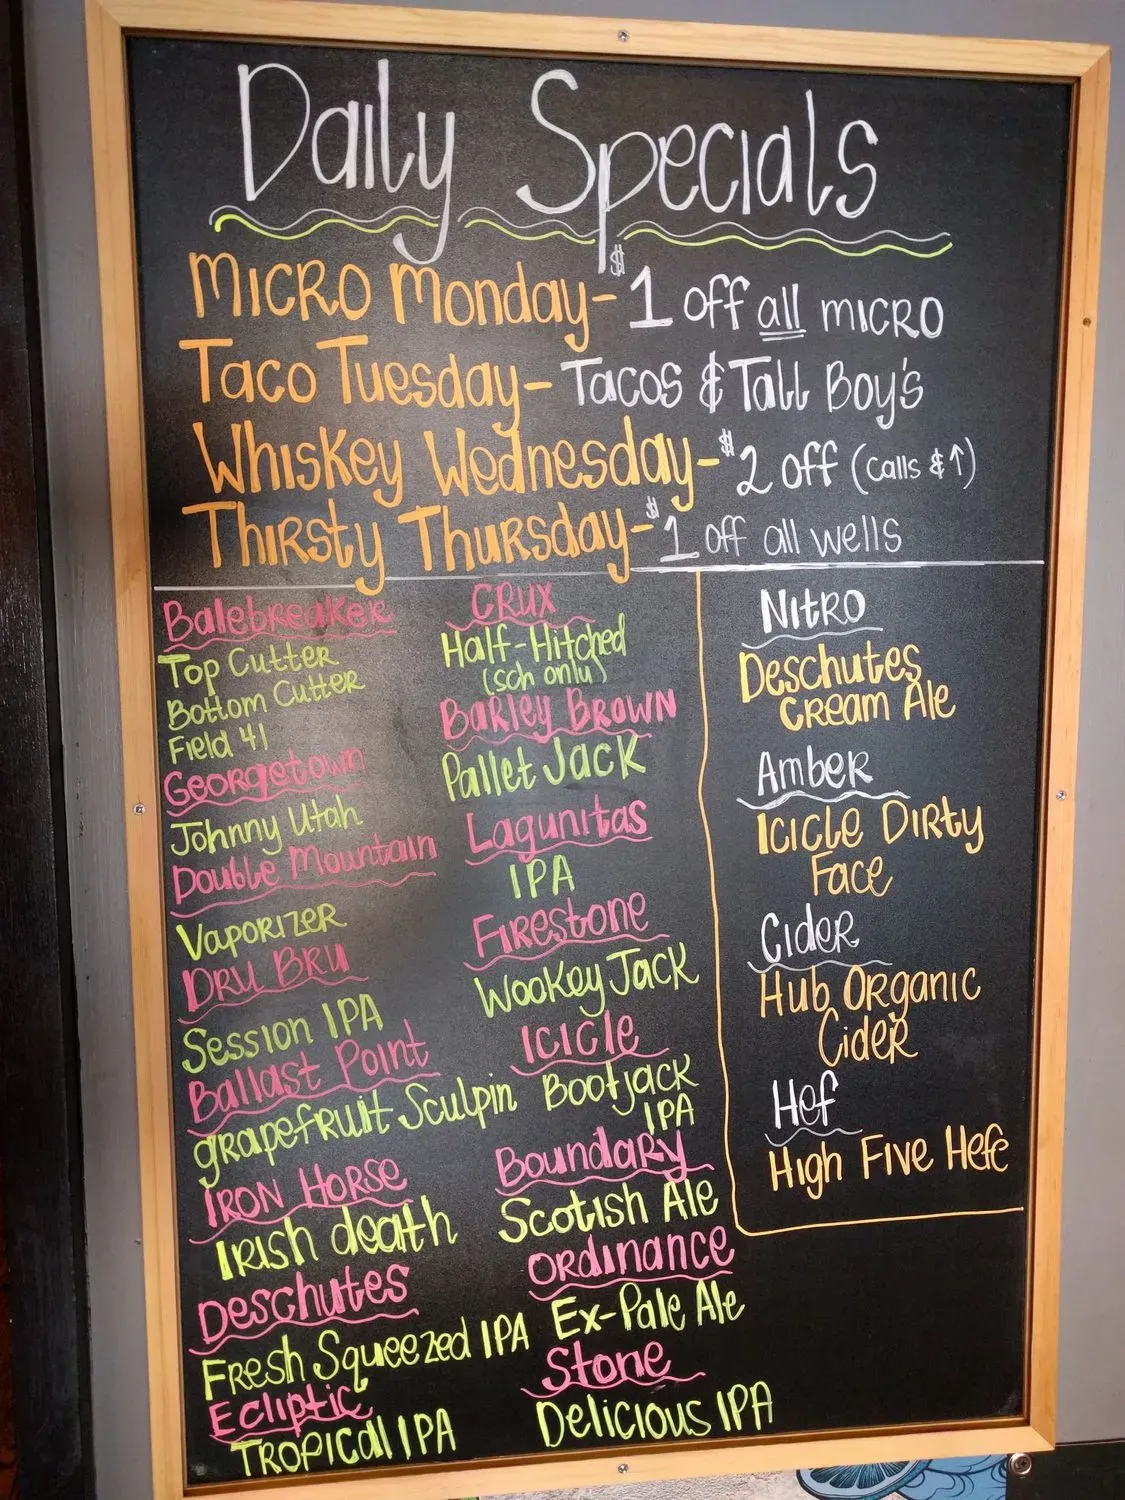 Daily Specials
Micro Monday - $1 off all micro
Taco Tuesday - Tacos & Tall Boy's
Whiskey Wednesday - $2 off (calls & ↑)
Thirsty Thursday - $1 off all wells
Balebreaker
Top Cutter
Bottom Cutter
Field 41
Georgetown
Johnny Utah
Double Mountain
Vaporizer
Dru Bru
Session IPA
Ballast Point
grapefruit Sculpin
Iron Horse
Irish death
Deschutes
Fresh Squeezed IPA
Ecliptic
Tropical IPA
Crux
Half-Hitched
(sch only)
Barley Brown
Pallet Jack
Lagunitas
IPA
Firestone
Wookey Jack
Icicle
Bootjack
IPA
Boundary
Scotish Ale
Ordinance
Ex-Pale Ale
Stone
Delicious IPA
Nitro
Deschutes
Cream Ale
Amber
Icicle Dirty
Face
Cider
Hub Organic
Cider
Hef
High Five Hefe